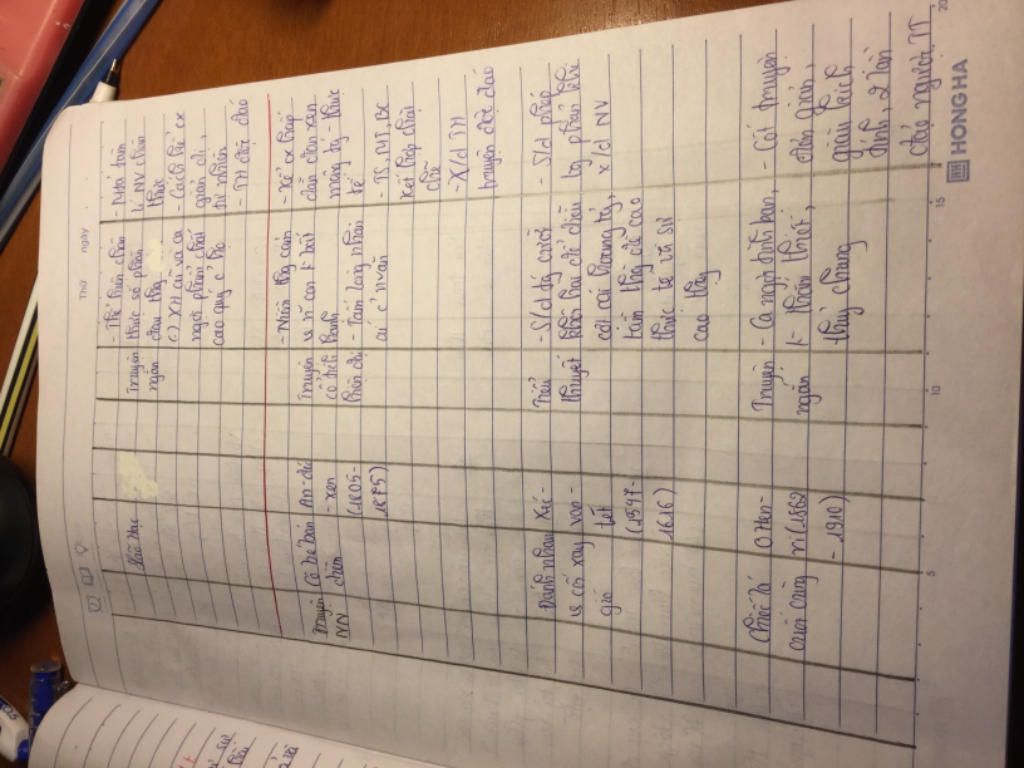 Thứ ngày
Lão Hạc
Truyện
ngắn
- Thể hiện chân
thực số phận
đau thg
(-) XH cũ và ca
ngợi phẩm chất
cao quý ở họ
- Nhớ tâm
lí NV chân
thực
- Cách kể cx
giản dị,
tự nhiên
- TH độc đáo
Truyện
NN
Cô bé bán
diêm
An-đéc
- xen
(1805-
1875)
Truyện
cổ tích
- Niềm thg cảm
vs 1 em bé bất
hạnh
- Tấm lòng nhân
ái
- Kể cx hấp
dẫn đan xen
mộng tg - thực
tế
- TS, MT, BC
kết hợp chặt
chẽ
- X/d TH
truyện độc đáo
Đánh nhau
vs cối xay
gió
Xéc-
van-
tét
(1547-
1616)
Tiểu
thuyết
- S/d tg cười
khôi hài để chế
cười cái hoang tg,
tầm thg đề cao
thực tế và sự
cao thg
- S/d phép
tg phản khi
x/d NV
Chiếc lá
cuối cùng
O Hen-
ri (1862
- 1910)
Truyện
ngắn
- Ca ngợi tình bạn,
thân thiết,
thủy chung
- Cốt truyện
đơn giản,
giàu kịch
tính, 2 lần
đảo ngược TT
5
10
15
20
HONG HA